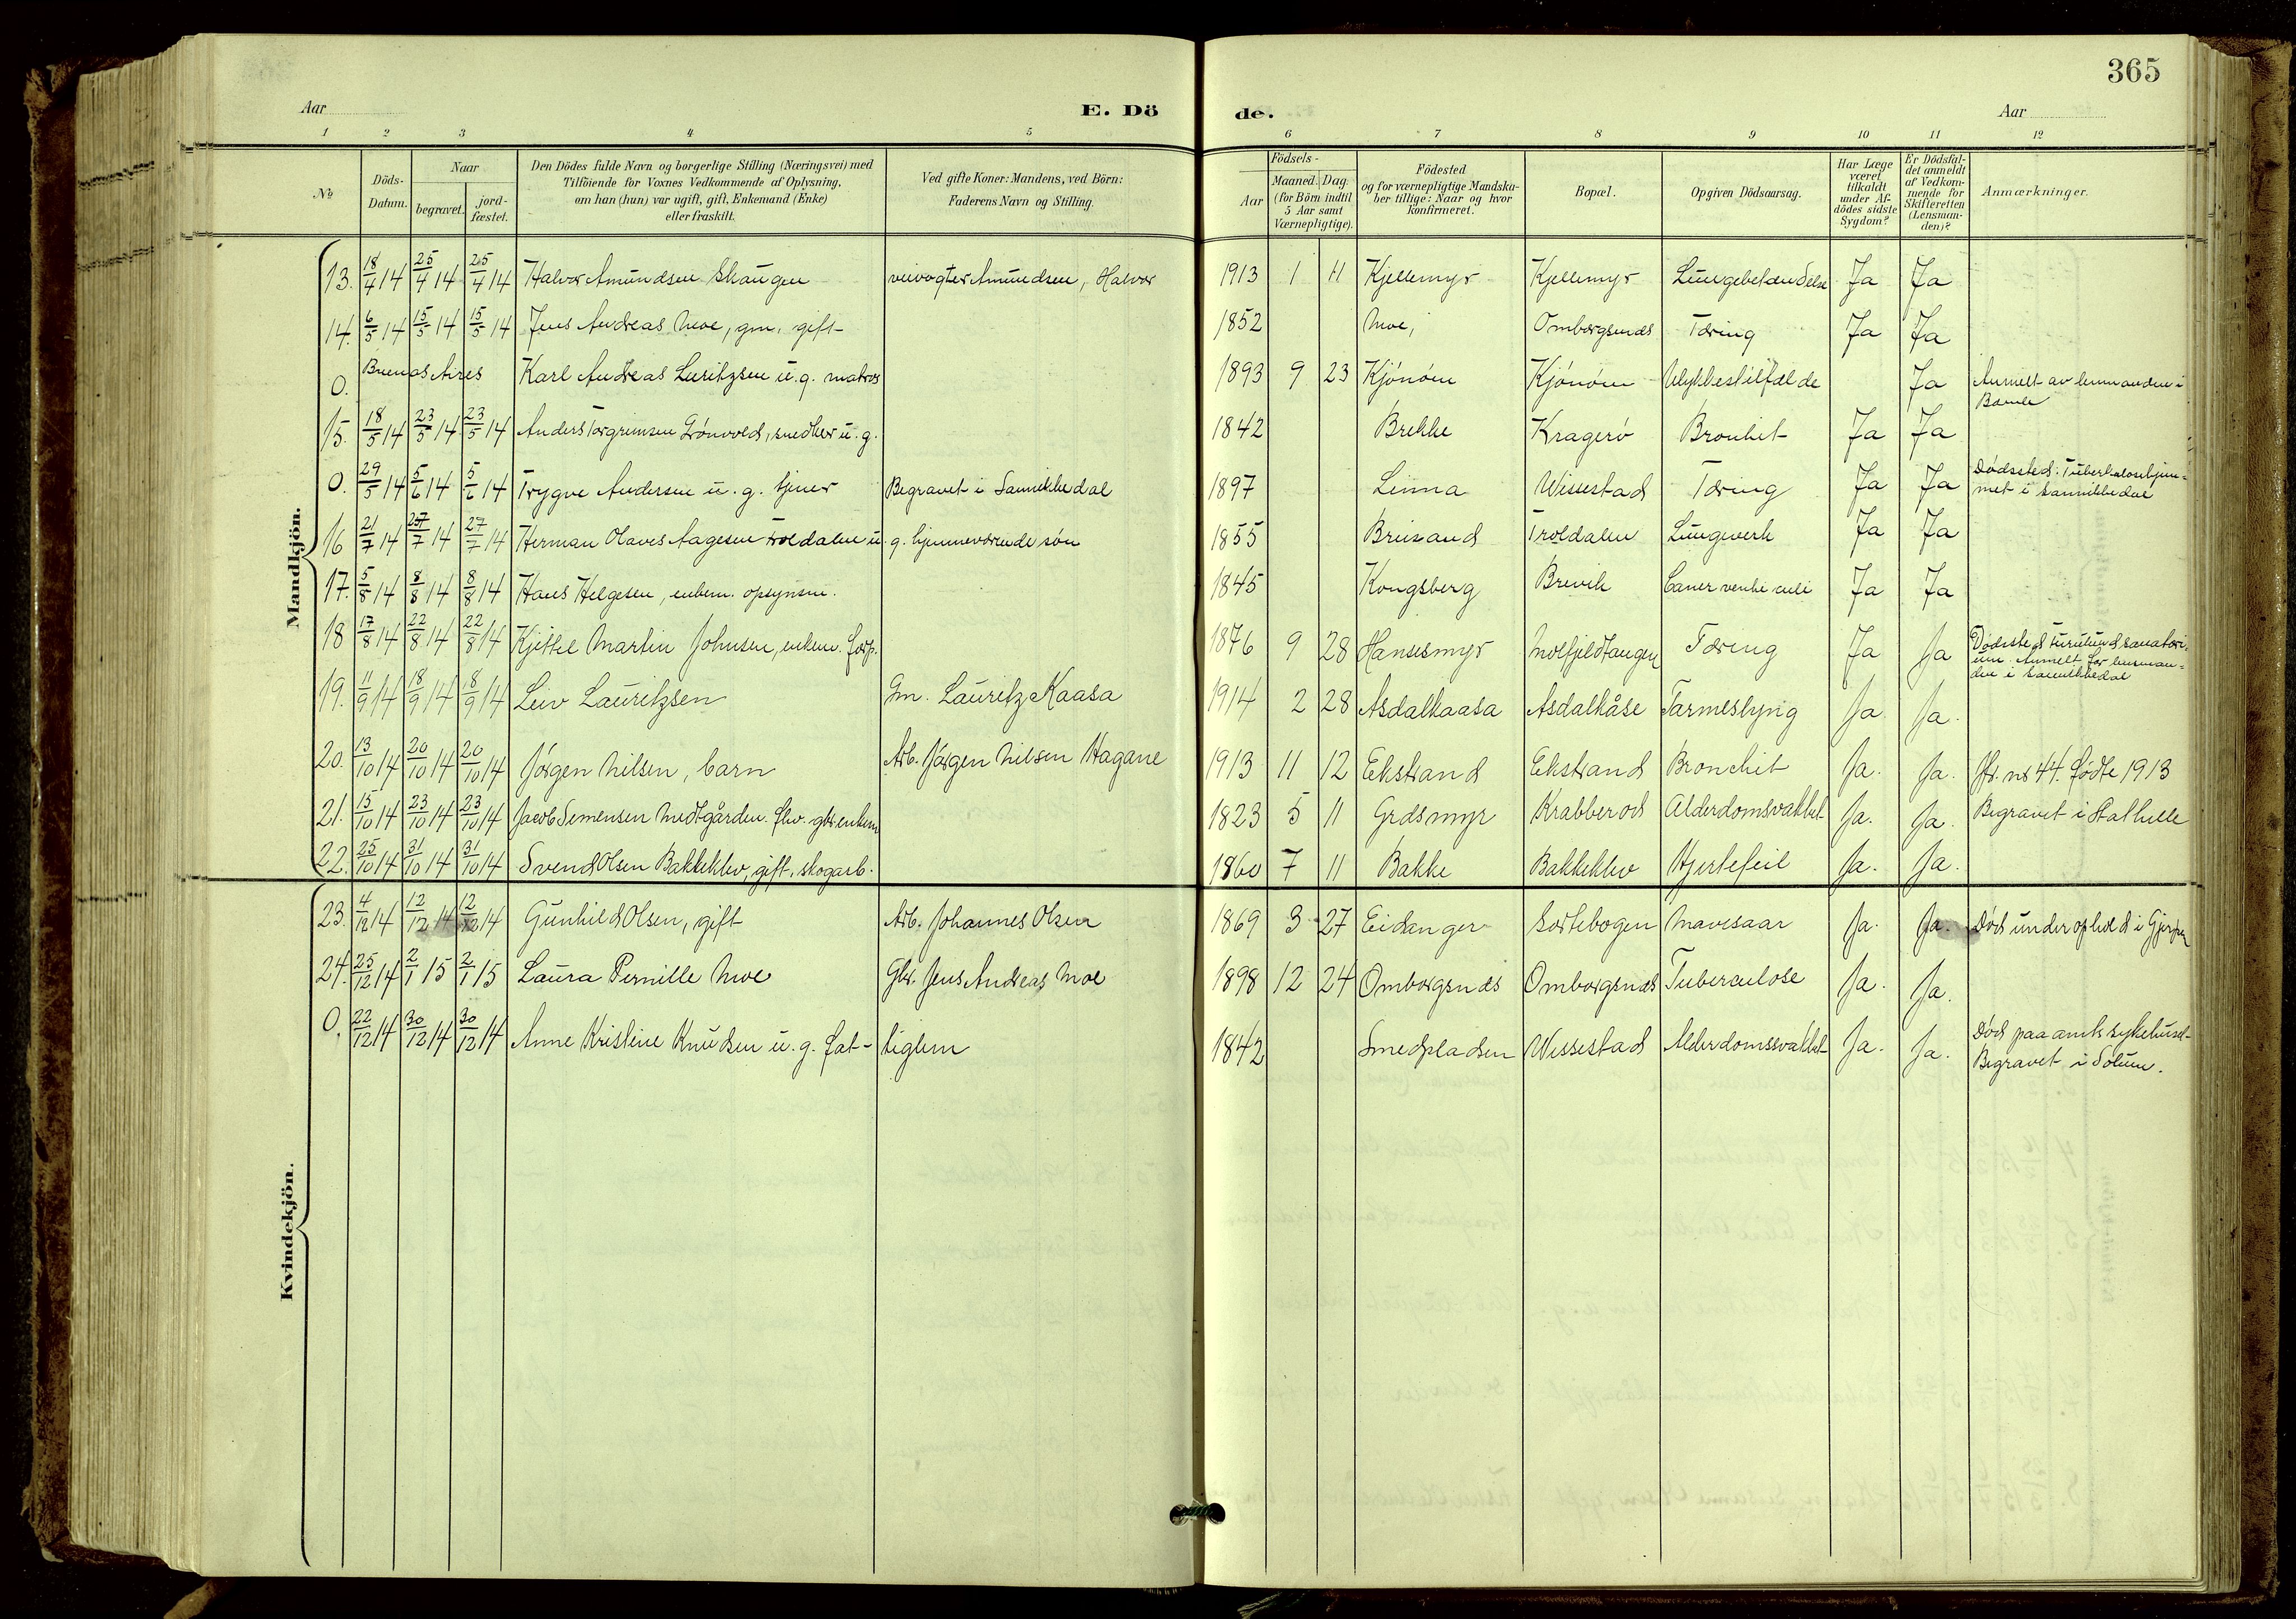 365
Aar
E. Dö
de.
Aar
1 2 3 4 5 6 7 8 9 10 11 12
No
Döds-Datum.
Naar
begravet.
jord-fæstet.
Den Dödes fulde Navn og borgerlige Stilling (Næringsvei) med
Tilföiende for Voxnes Vedkommende af Oplysning,
om han (hun) var ugift, gift, Enkemand (Enke)
eller fraskilt.
Ved gifte Koner: Mandens, ved Börn:
Faderens Navn og Stilling.
Födsels-
Aar
Maaned. Dag.
(for Börn indtil
5 Aar samt
Værnepligtige).
Födested
og for værnepligtige Mandska-
ber tillige: Naar og hvor
konfirmeret.
Bopæl.
Opgiven Dödsaarsag.
Har Læge
været
tilkaldt
under Af-
dödes sidste
Sygdom?
Er Dödsfal-
det anmeldt
af Vedkom-
mende for
Skifteretten
(Lensman-
den)?
Anmærkninger.
Mandkjön.
13. 18/4 14 25/4 14 25/4 14 Halvor Amundsen Skaugen veivogter Amundsen, Halvor 1913 1 11 Kjellemyr Kjellemyr Lungebetændelse Ja Ja
14. 6/5 14 15/5 14 15/5 14 Jens Andreas Moe, gm. gift 1852 Moe, Omborgsnæs Tæring Ja Ja
0. Buenos Aires Karl Andreas Luritzsen u. g. matros 1893 9 23 Kjónóm Kjónóm Ulykkestilfælde Ja Anmelt av lensmanden i
Bamle
15. 18/5 14 23/5 14 23/5 14 Anders Torgrimsen Grönvold, snedker u. g. 1842 Brekke Kragerö Bronkit Ja Ja
0. 29/5 14 5/6 14 5/6 14 Trygve Andersen u. g. tjener Begravet i Sannikkedal 1897 Linna Wissestad Tæring Ja Ja Dødssted: Tuberkulosehjem-
met i Sannikkedal
16 21/7 14 27/7 14 27/7 14 Herman Olaves Aagesen Troldalen u. g. hjemmeværende søn 1855 Breisand Troldalen Lungeverk Ja Ja
17. 5/8 14 8/8 14 8/8 14 Hans Helgesen, enkem. opsynsm. 1845 Kongsberg Brevik Cancer ventriculi Ja Ja
18 17/8 14 22/8 14 22/8 14 Kjittel Martin Johnsen, enkem. forp. 1876 9 28 Hansesmyr Molfjeldtangen Tæring Ja Ja Dødssted Furulund sanatori-
um. Anmelt for lensman-
den i Sannikkedal
19. 11/9 14 18/9 14 18/9 14 Leiv Lauritzsen Gm. Lauritz Kaasa 1914 2 28 Asdalkaasa Asdalkåse Tarmeslyng Ja Ja.
20. 13/10 14 20/10 14 20/10 14 Jörgen Nilsen, barn Arb. Jörgen Nilsen Hagane 1913 11 12 Ekstrand Ekstrand Bronchit Ja. Ja. Jfr. no 44. fødte 1913
21. 15/10 14 23/10 14 23/10 14 Jacob Semensen Medtgården. fhv. gbr. enkem 1823 5 11 Grdsmyr Krabberød Alderdomsvakhet Ja. Ja. Begravet i Stathelle
22. 25/10 14 31/10 14 31/10 14 Svend Olsen Bakkeklev, gift, skogarb. 1860 7 11 Bakke Bakkeklev Hjertefeil Ja. Ja.
Kvindekjön.
23. 4/12 14 12/12 14 12/12 14 Gunhild Olsen, gift Arb. Johannes Olsen 1869 3 27 Eidanger Sortebogen Mavesaar Ja. Ja. Død under ophold i Gjerpen
24. 25/12 14 2/1 15 2/1 15 Laura Pernille Moe Gbr. Jens Andreas Moe 1898 12 24 Omborgsnæs Omborgsnæs Tuberculose Ja. Ja.
0. 22/12 14 30/12 14 30/12 14 Anne Kristine Knudsen u. g. fat- tiglem 1842 Smedpladsen Wissestad Alderdomssvakhet Ja. Ja. Død paa amtssykehuset-
Begravet i Solum.